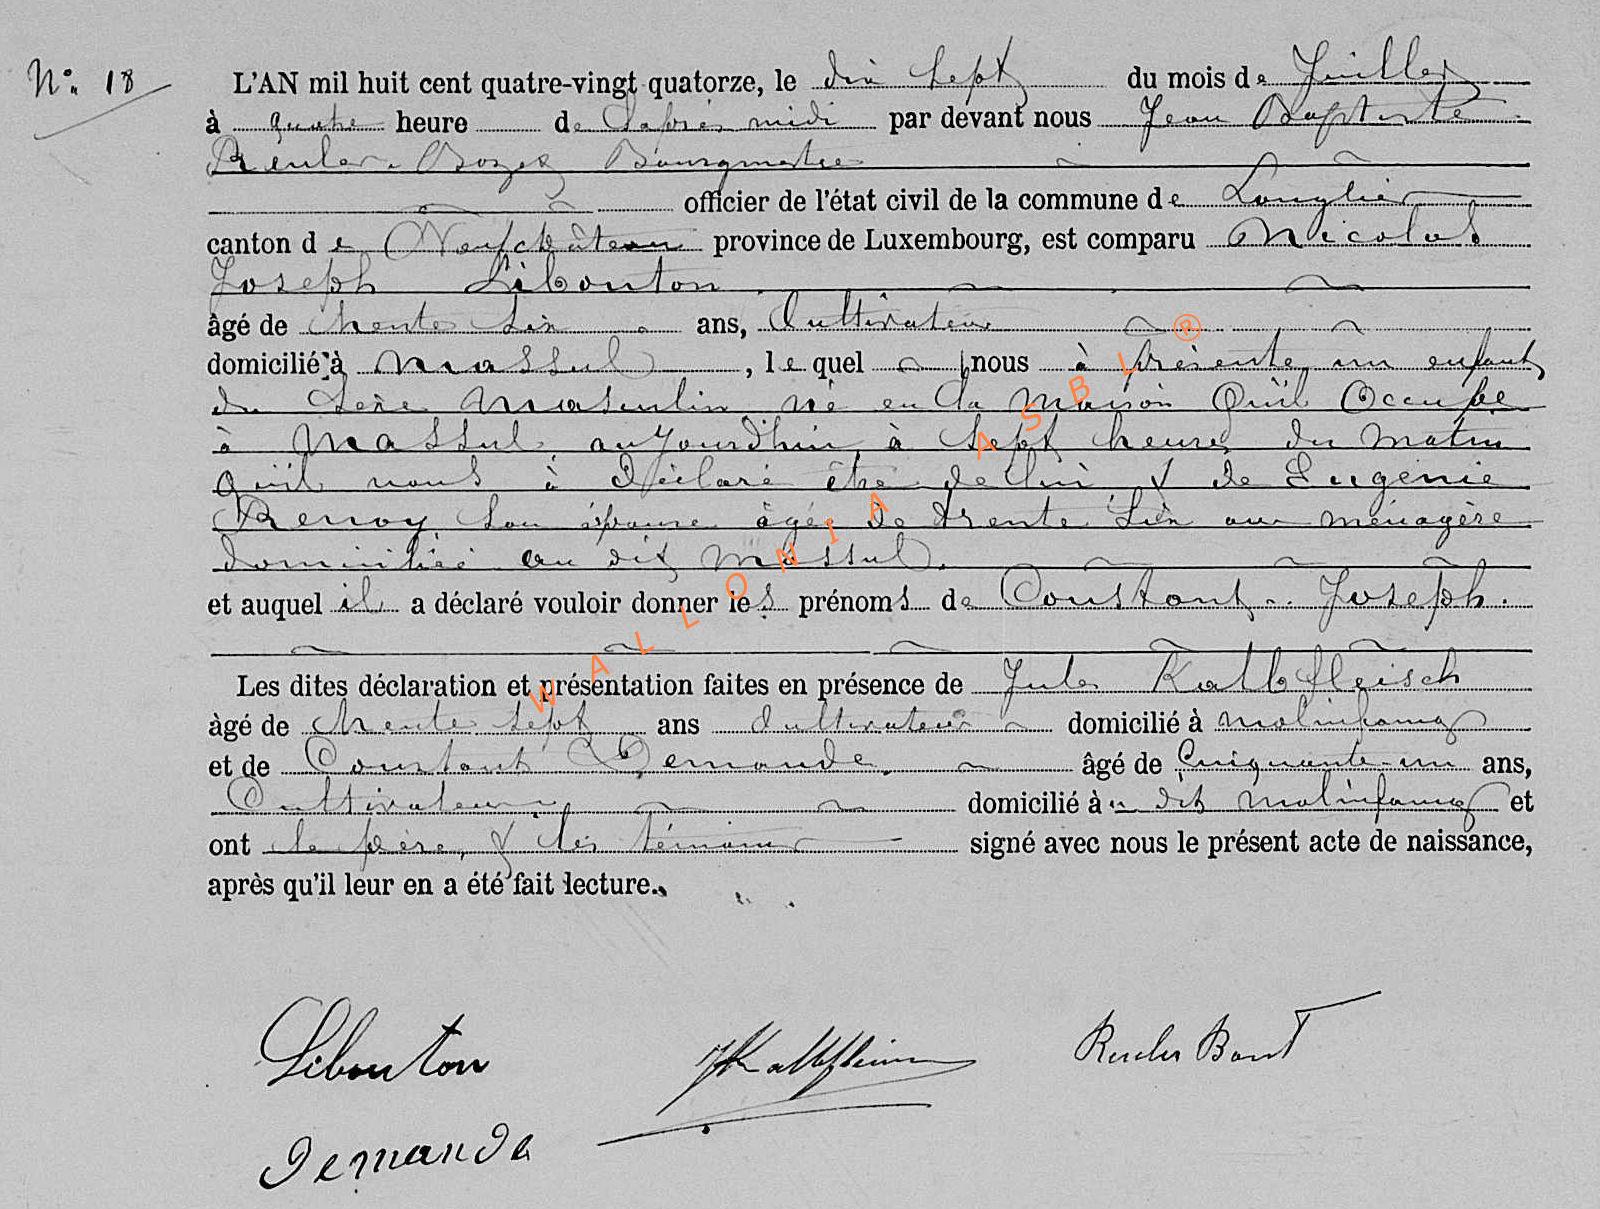 N° 18
L'AN mil huit cent quatre-vingt quatorze, le dix sept du mois de Juillet
à quatre heure de l'après midi par devant nous Jean Baptiste
Reuler Bourgmestre
officier de l'état civil de la commune de Longlier
canton de Neufchâteau province de Luxembourg, est comparu Nicolas
Joseph Libouton
âgé de trente six ans, Cultivateur
domicilié à Massul, lequel nous à présenté un enfant
du sexe Masculin né en la Maison Qu'il Occupe
à Massul aujourdhui à sept heures du matin
Qu'il nous à déclaré être de lui & de Eugénie
Renoy son épouse âgée de trente six ans ménagère
domiciliée au dit Massul.
et auquel il a déclaré vouloir donner les prénoms de Constant Joseph.
Les dites déclaration et présentation faites en présence de Jules Kalbfleisch
àgé de trente sept ans Cultivateur domicilié à Molinfaing
et de Constant Demande. âgé de Cinquante un ans,
Cultivateur domicilié àu dit Molinfaing et
ont le père, & les témoins signé avec nous le présent acte de naissance,
après qu'il leur en a été fait lecture.
WALLONIA ASBL ®
Libouton
Demande